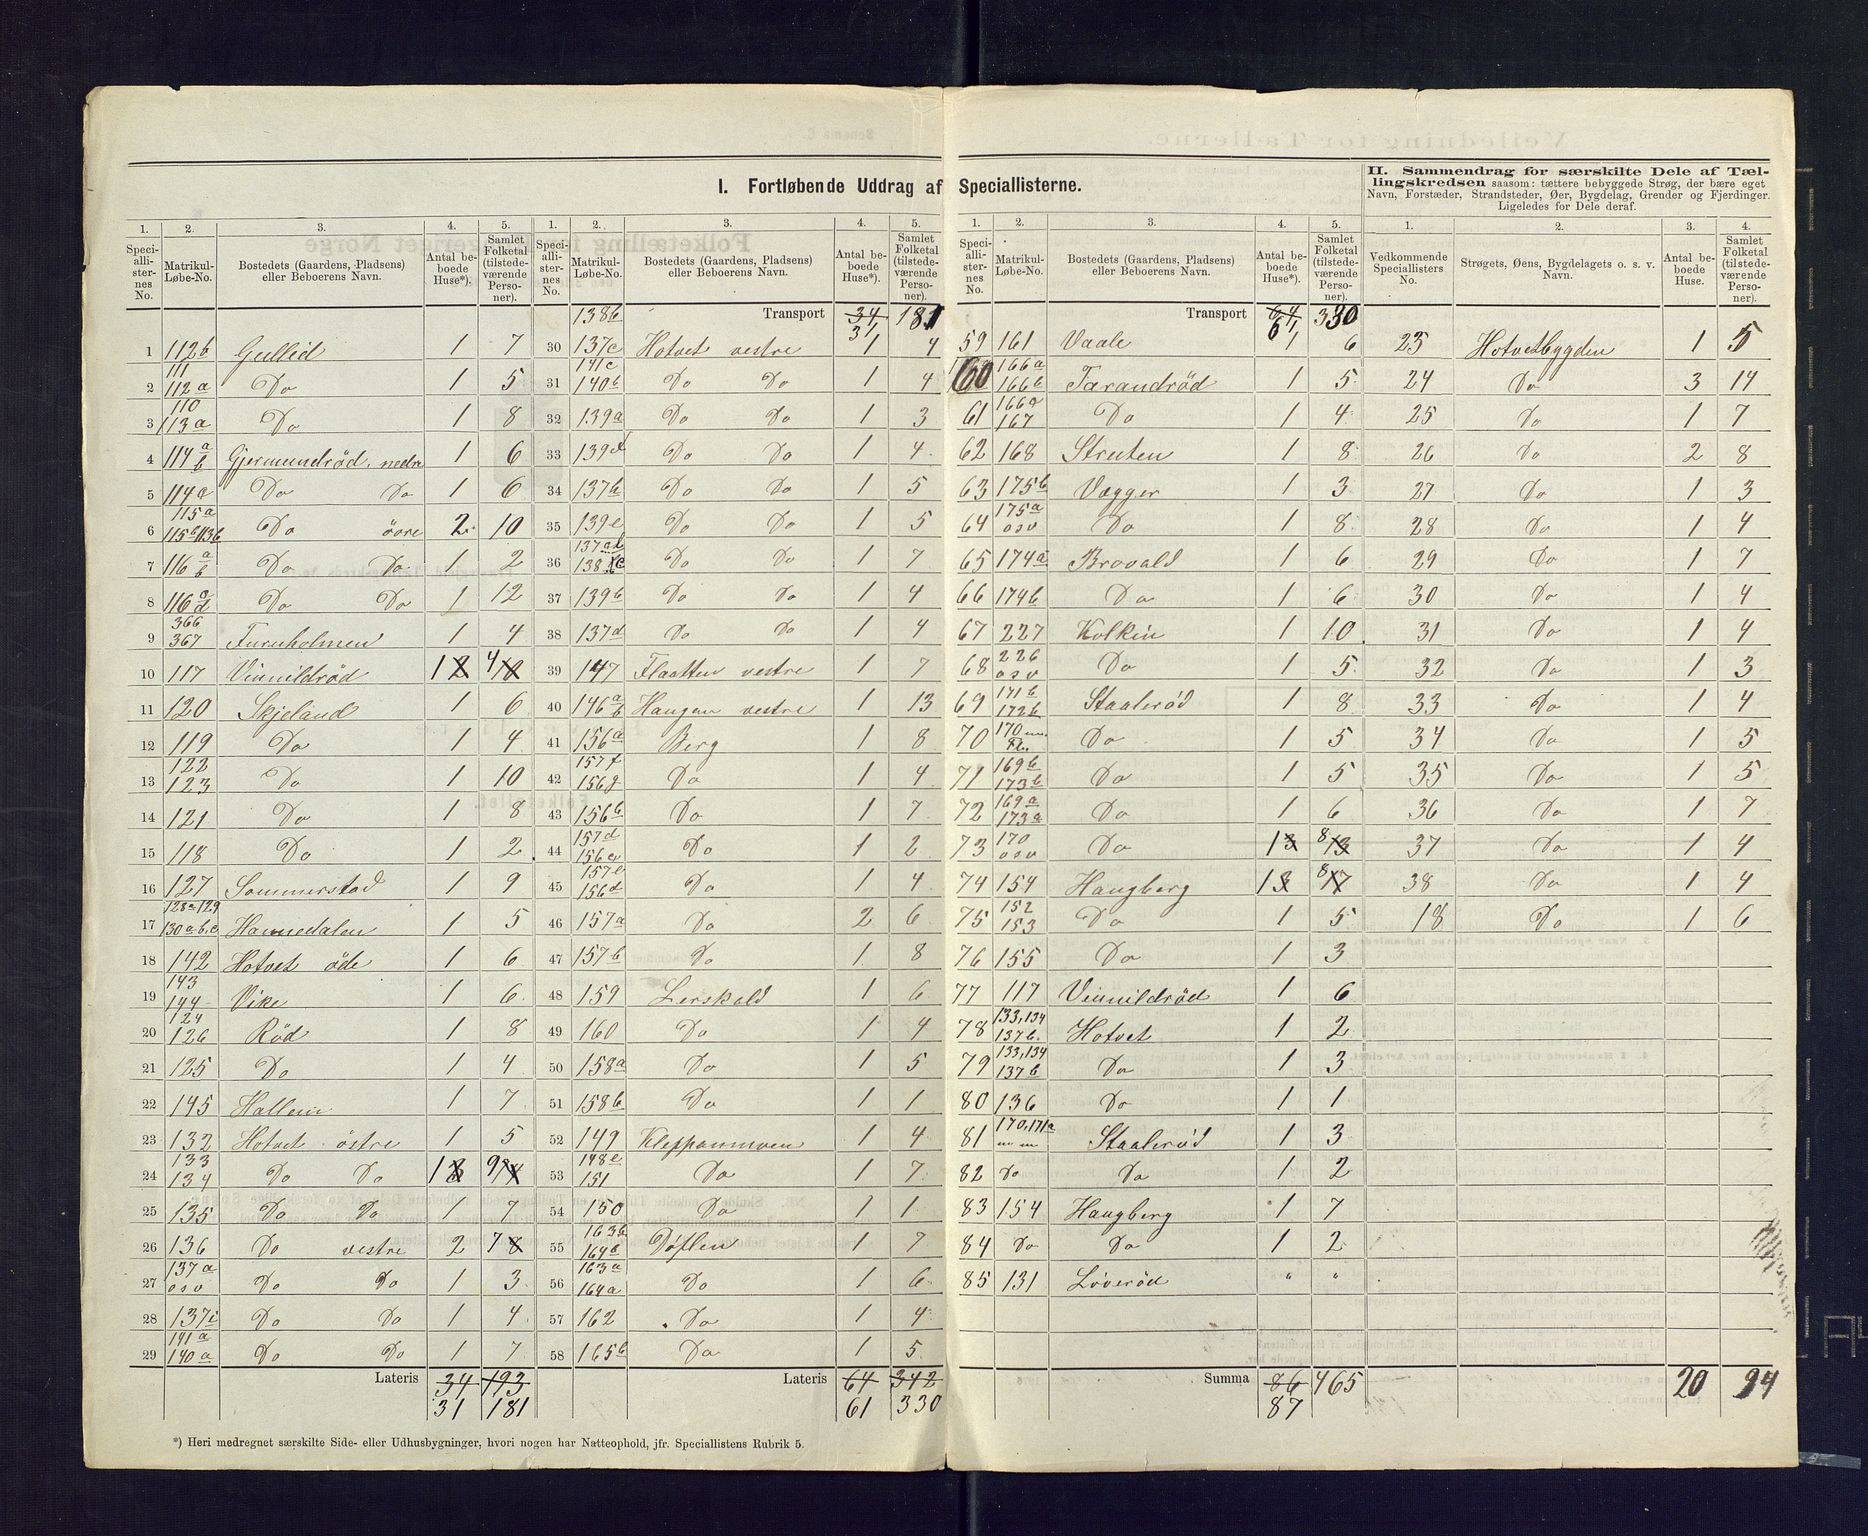 I. Fortløbende Uddrag af Speciallisterne.
II. Sammendrag for særskilte Dele af Tællingskredsen saasom: tættere bebyggede Strøg, der bære eget
Navn, Forstæder, Strandsteder, Øer, Bygdelag, Grender og Fjerdinger.
Ligeledes for Dele deraf.
1. 2. 3. 4. 5.
Speciallisternes No. Matrikul-Løbe-No. Bostedets (Gaardens, Pladsens) eller Beboerens Navn. Antal beboede Huse*). Samlet Folketal (tilstedeværende Personer).
1 112b Gullid 1 7
2 111 112a Do 1 5
3 110 113a Do 1 8
4 114 a b Gjermundrød nedre 1 6
5 114a Do Do 1 6
6 115a 115b 113b Do övre 2 10
7 116 a b Do Do 1 2
8 116 a d Do Do 1 12
9 366 367 Furuholmen 1 4
10 117 Vinnildrød 1 4
11 120 Skjeland 1 6
12 119 Do 1 4
13 122 123 Do 1 10
14 121 Do 1 8
15 118 Do 1 2
16 127 Sommerstad 1 9
17 128a 129 130a.b.c Hannedalen 1 5
18 142 Hotvet öde 1 6
19 143 144 Vike 1 6
20 124 126 Rød 1 8
21 125 Do 1 4
22 145 Hallenn 1 7
23 132 Hotvet östre 1 5
24 133 134 Do Do 1 9
25 135 Do Do 1 7
26 136 Do vestre 2 7
27 137a osv Do Do 1 3
28 137i Do Do 1 4
29 141a 140a Do Do 1 7
Lateris 34 193
31 181
1. 2. 3. 4. 5.
Speciallisternes No. Matrikul-Løbe-No. Bostedets (Gaardens, Pladsens) eller Beboerens Navn. Antal beboede Huse*). Samlet Folketal (tilstedeværende Personer).
Transport 34 31 181
30 138b 137c Hotvet vestre 1 4
31 141c 140b Do Do 1 4
32 139a Do Do 1 3
33 139d Do Do 1 4
34 137h Do Do 1 5
35 139c Do Do 1 5
36 137 138 Do Do 1 7
37 139b Do Do 1 4
38 137d Do Do 1 4
39 147 Flaatten vestre 1 7
40 146 a b Haugen vestre 1 13
41 156a Berg 1 8
42 157f 156g Do 1 4
43 156b Do 1 7
44 157d 156c Do 1 2
45 157e 156d Do 1 4
46 157a Do 2 6
47 157b Do 1 8
48 159 Lerskald 1 6
49 160 Do 1 4
50 158a Do 1 5
51 158b Do 1 1
52 149 Kleppanmoen 1 4
53 148c 151 Do 1 7
54 150 Do 1 1
55 163b 164c Döflen 1 7
56 163a 164a Do 1 6
57 162 Do 1 4
58 165b Do 1 5
Lateris 64 342
61 330
1. 2. 3. 4. 5.
Speciallisternes No. Matrikul-Løbe-No. Bostedets (Gaardens, Pladsens) eller Beboerens Navn. Antal beboede Huse*). Samlet Folketal (tilstedeværende Personer).
Transport 64 61 330
59 161 Vaale 1 6
60 166a 166b Tarandrød 1 5
61 166a 167 Do 1 4
62 168 Struten 1 8
63 175b Vægger 1 3
64 175a osv Do 1 8
65 174a Brovald 1 6
66 174b Do 1 6
67 227 Kolkin 1 10
68 226 osv Do 1 5
69 171b 172b Staalerød 1 8
70 170 Do 1 5
71 169b 173b Do 1 5
72 169a 173a Do 1 6
73 170 osv Do 1 8
74 154 Haugberg 1 8
75 152 153 Do 1 5
76 155 Do 1 3
77 117 Vinnildrød 1 6
78 133,134 137b. Hotvet 1 2
79 133,134 137b Do 1 3
80 136 Do 1 1
81 170,171a Staalerød 1 3
82 Do Do 1 2
83 154 Haugberg 1 7
84 Do Do 1 2
85 131 Löverød " "
Summa 86 465
87
1. 2. 3. 4.
Vedkommende Speciallisters No. Strøgets, Øens, Bygdelagets o. s. v. Navn. Antal beboede Huse. Samlet Folketal (tilstedeværende Personer).
23 Hotvetbygden 1 5
24 Do 3 14
25 Do 1 7
26 Do 2 8
27 Do 1 3
28 Do 1 4
29 Do 1 7
30 Do 1 4
31 Do 1 4
32 Do 1 3
33 Do 1 4
34 Do 1 5
35 Do 1 5
36 Do 1 7
37 Do 1 4
38 Do 1 4
18 Do 1 6
20 94
*) Heri medregnet særskilte Side- eller Udhusbygninger, hvori nogen har Natteophold, jfr. Speciallistens Rubrik 5.